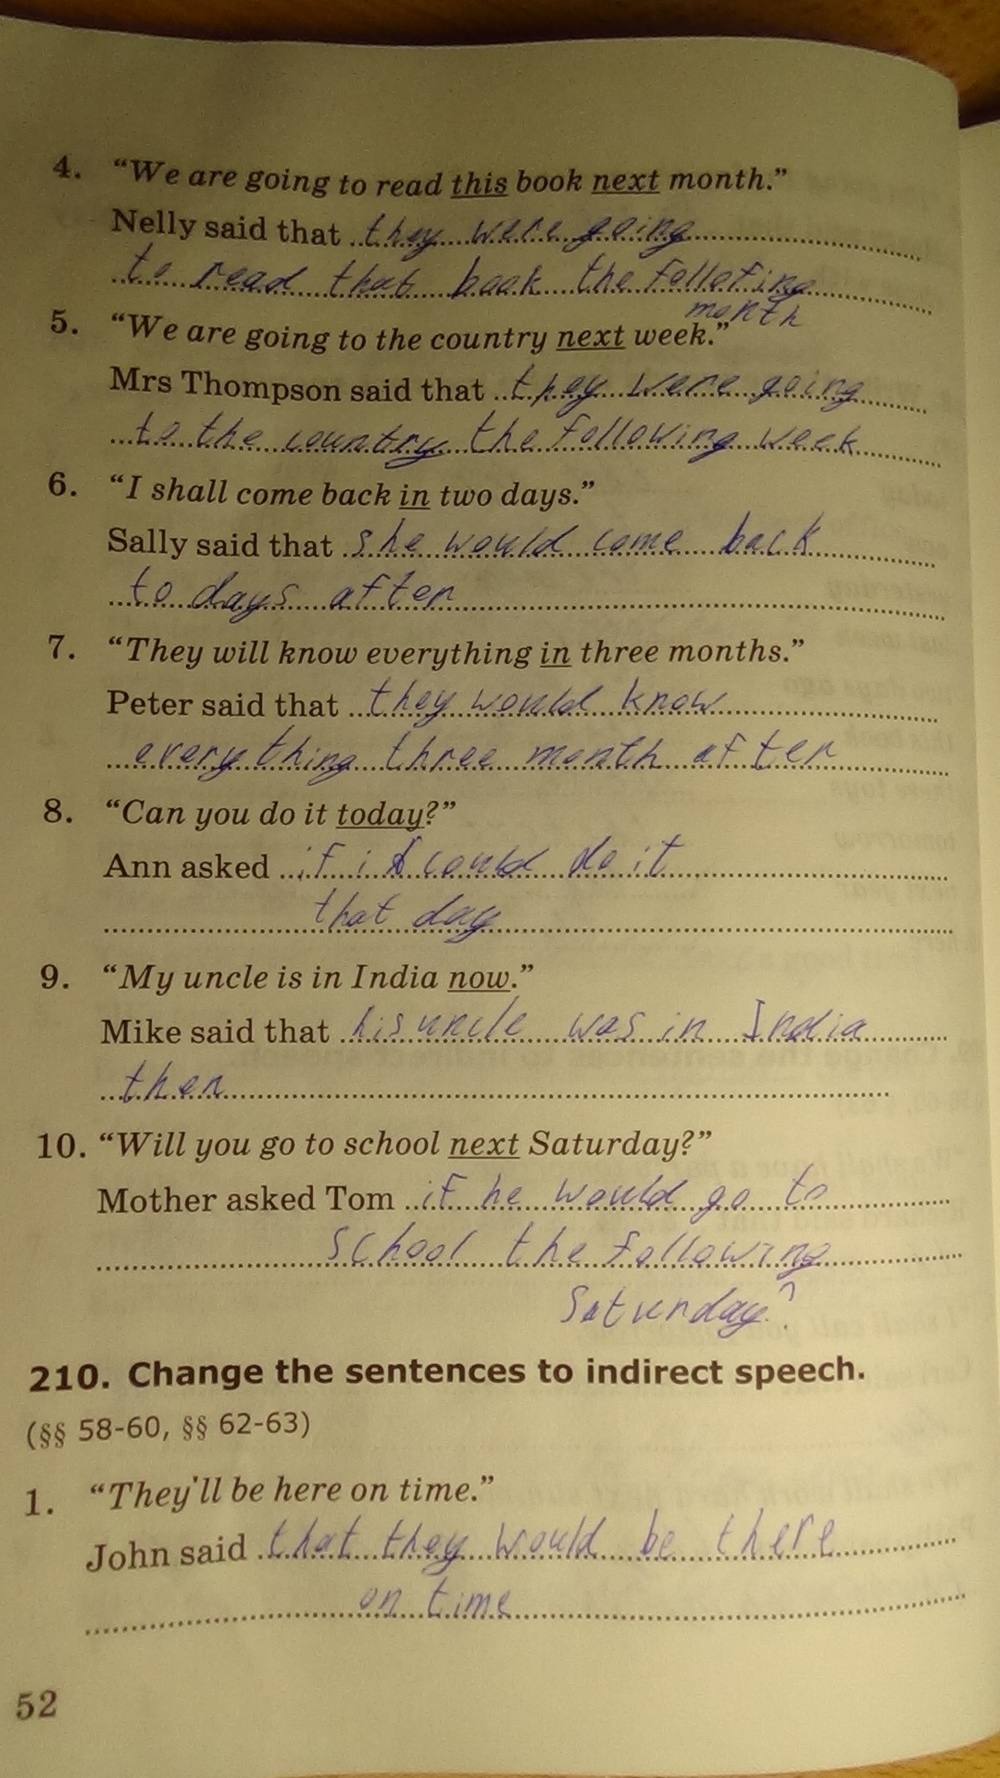 4. “We are going to read this book next month.”
Nelly said that they were going
to read that book the follofing
month
5. “We are going to the country next week.”
Mrs Thompson said that they were going
to the country the following week
6. “I shall come back in two days.”
Sally said that she would come back
to days after
7. “They will know everything in three months.”
Peter said that they would know
everything three month after
8. “Can you do it today?”
Ann asked if i could do it
that day
9. “My uncle is in India now.”
Mike said that his uncle was in India
then
10. “Will you go to school next Saturday?”
Mother asked Tom if he would go to
school the following
Saturday?
210. Change the sentences to indirect speech.
(§§ 58-60, §§ 62-63)
1. “They'll be here on time.”
John said that they would be there
on time
52